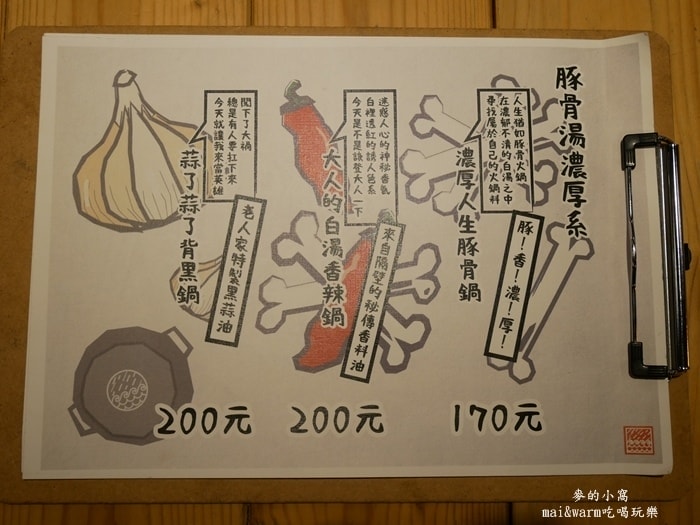 豚骨湯濃厚系
「人生猶如豚骨火鍋
在濃郁不潰的白湯之中
尋找屬於自己的火鍋料
濃厚人生豚骨鍋
豚！香！濃！厚！
170元
迷惑人心的神秘香氣
白裡透紅的誘人色系
今天是不是該登大人一下
大人的白湯香辣鍋
來自隔壁的秘傳香料油
200元
闖下了大禍
總是有人要扛下來
今天就讓我來當英雄
蒜了蒜了背黑鍋
老人家特製黑蒜油
200元
麥的小窩
mai&warm吃喝玩樂